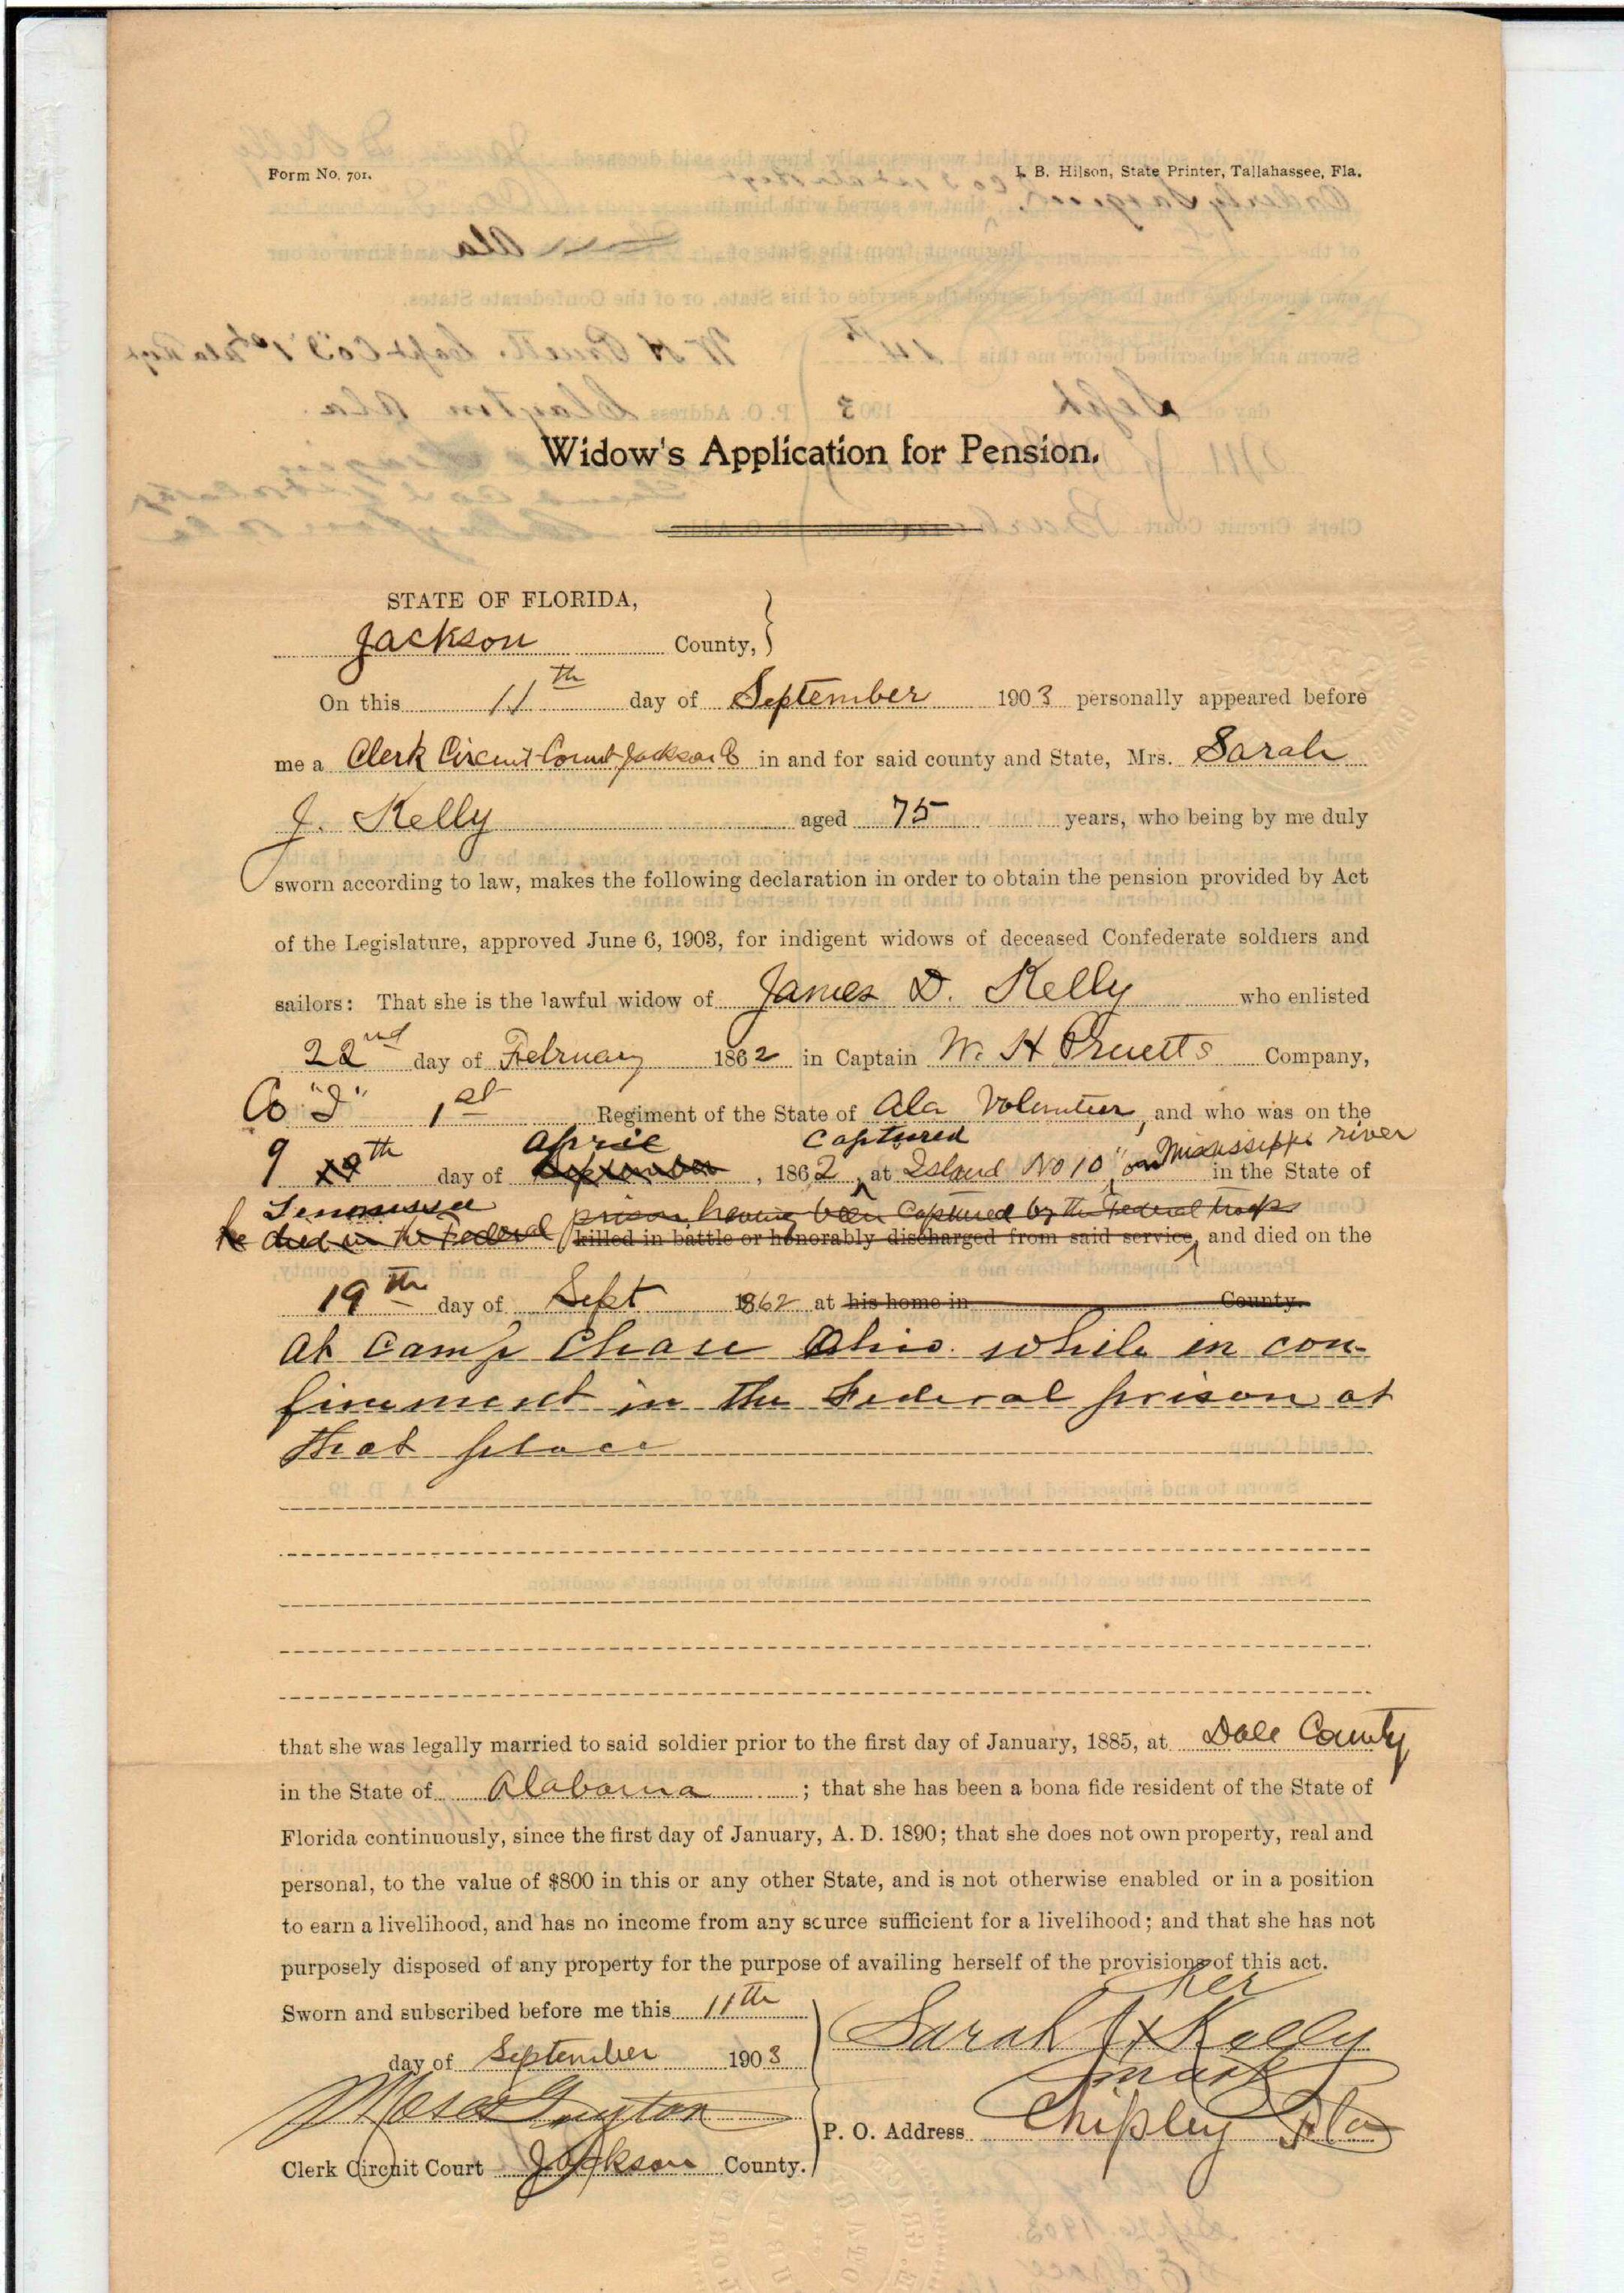 Form No. 701.
I. B. Hilson, State Printer, Tallahassee, Fla.
Widow's Application for Pension.
STATE OF FLORIDA,
Jackson County,
On this 11th day of September 1903 personally appeared before
me a Clerk Circuit Court Jackson Co in and for said county and State, Mrs. Sarah
J. Kelly aged 75 years, who being by me duly
sworn according to law, makes the following declaration in order to obtain the pension provided by Act
of the Legislature, approved June 6, 1903, for indigent widows of deceased Confederate soldiers and
sailors: That she is the lawful widow of James D. Kelly who enlisted
22nd day of February 1862 in Captain W. H Pruetts Company,
Co "I" 1st Regiment of the State of Ala Volunteer, and who was on the
April captured Mississippi river
9 19th day of September, 1862, at Island No 10" on in the State of
Tennessee prison, having been captured by the Federal troops
he died in the Federal killed in battle or honorably discharged from said service, and died on the
19th day of Sept 1862 at his home in County.
at Camp Chase Ohio. while in con-
finement in the Federal prison at
that place
that she was legally married to said soldier prior to the first day of January, 1885, at Dale County
in the State of Alabama; that she has been a bona fide resident of the State of
Florida continuously, since the first day of January, A. D. 1890; that she does not own property, real and
personal, to the value of $800 in this or any other State, and is not otherwise enabled or in a position
to earn a livelihood, and has no income from any scurce sufficient for a livelihood; and that she has not
purposely disposed of any property for the purpose of availing herself of the provisions of this act.
her
Sworn and subscribed before me this 11th
Sarah J x Kelly
mark
day of September 1903
Moses Guyton
P. O. Address Chipley Fla
Clerk Circuit Court Jackson County.